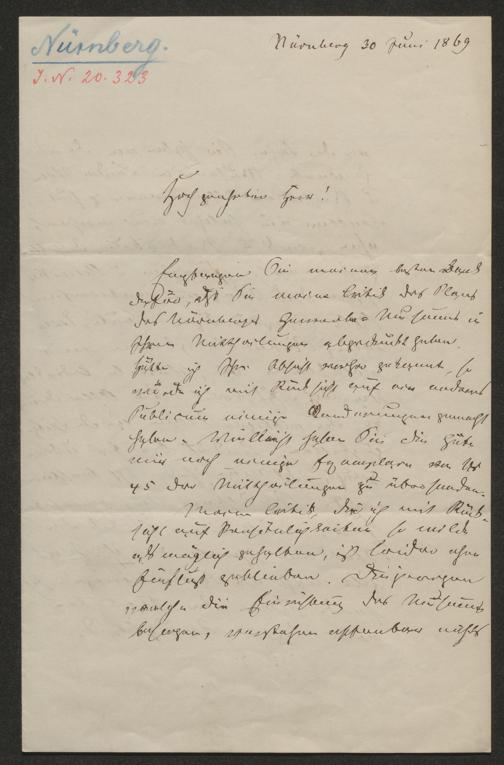 Nürnberg.
J. N. 20.323
Nürnberg 30 Juni 1869
Hoch geehrter Herr!
Empfangen Sie meinen besten Dank
dafür, daß Sie meine Critik des Planes
des Nürnberger Gewerbe-Museums in
Ihren Mittheilungen abgedruckt haben.
Hätte ich Ihre Absicht vorher gekannt, so
würde ich mit Rücksicht auf ein anderes
Publicum einige Aenderungen gemacht
haben. Vielleicht haben Sie die Güte
mir noch einige Exemplare von Nr
45 der Mittheilungen zu übersenden.
Meine Critik, die ich mit Rück-
sicht auf Persönlichkeiten so milde
als möglich gehalten, ist leider ohne
Einfluß geblieben. Diejenigen
welche die Einrichtung des Museums
besorgen, verstehen offenbar nichts